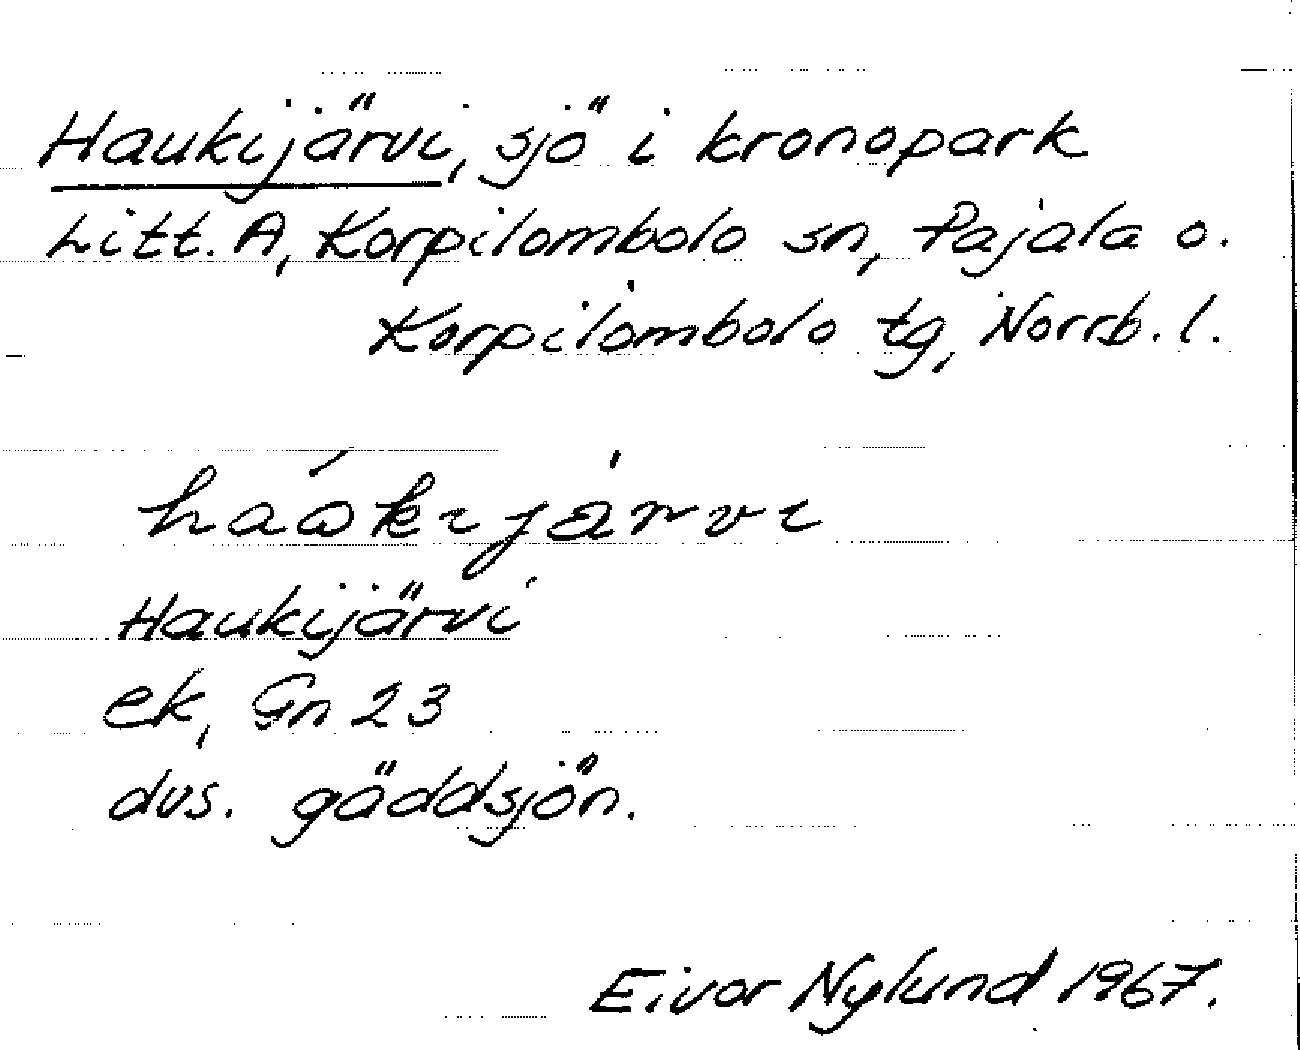 Haukijärvi, sjö i kronopark
Litt. A, Korpilombolo sn, Pajala o.
Korpilombolo tg, Norrb. l.
Haukijärvi
ek, Gn 23
dvs. gäddsjön.
Eivor Nylund 1967.